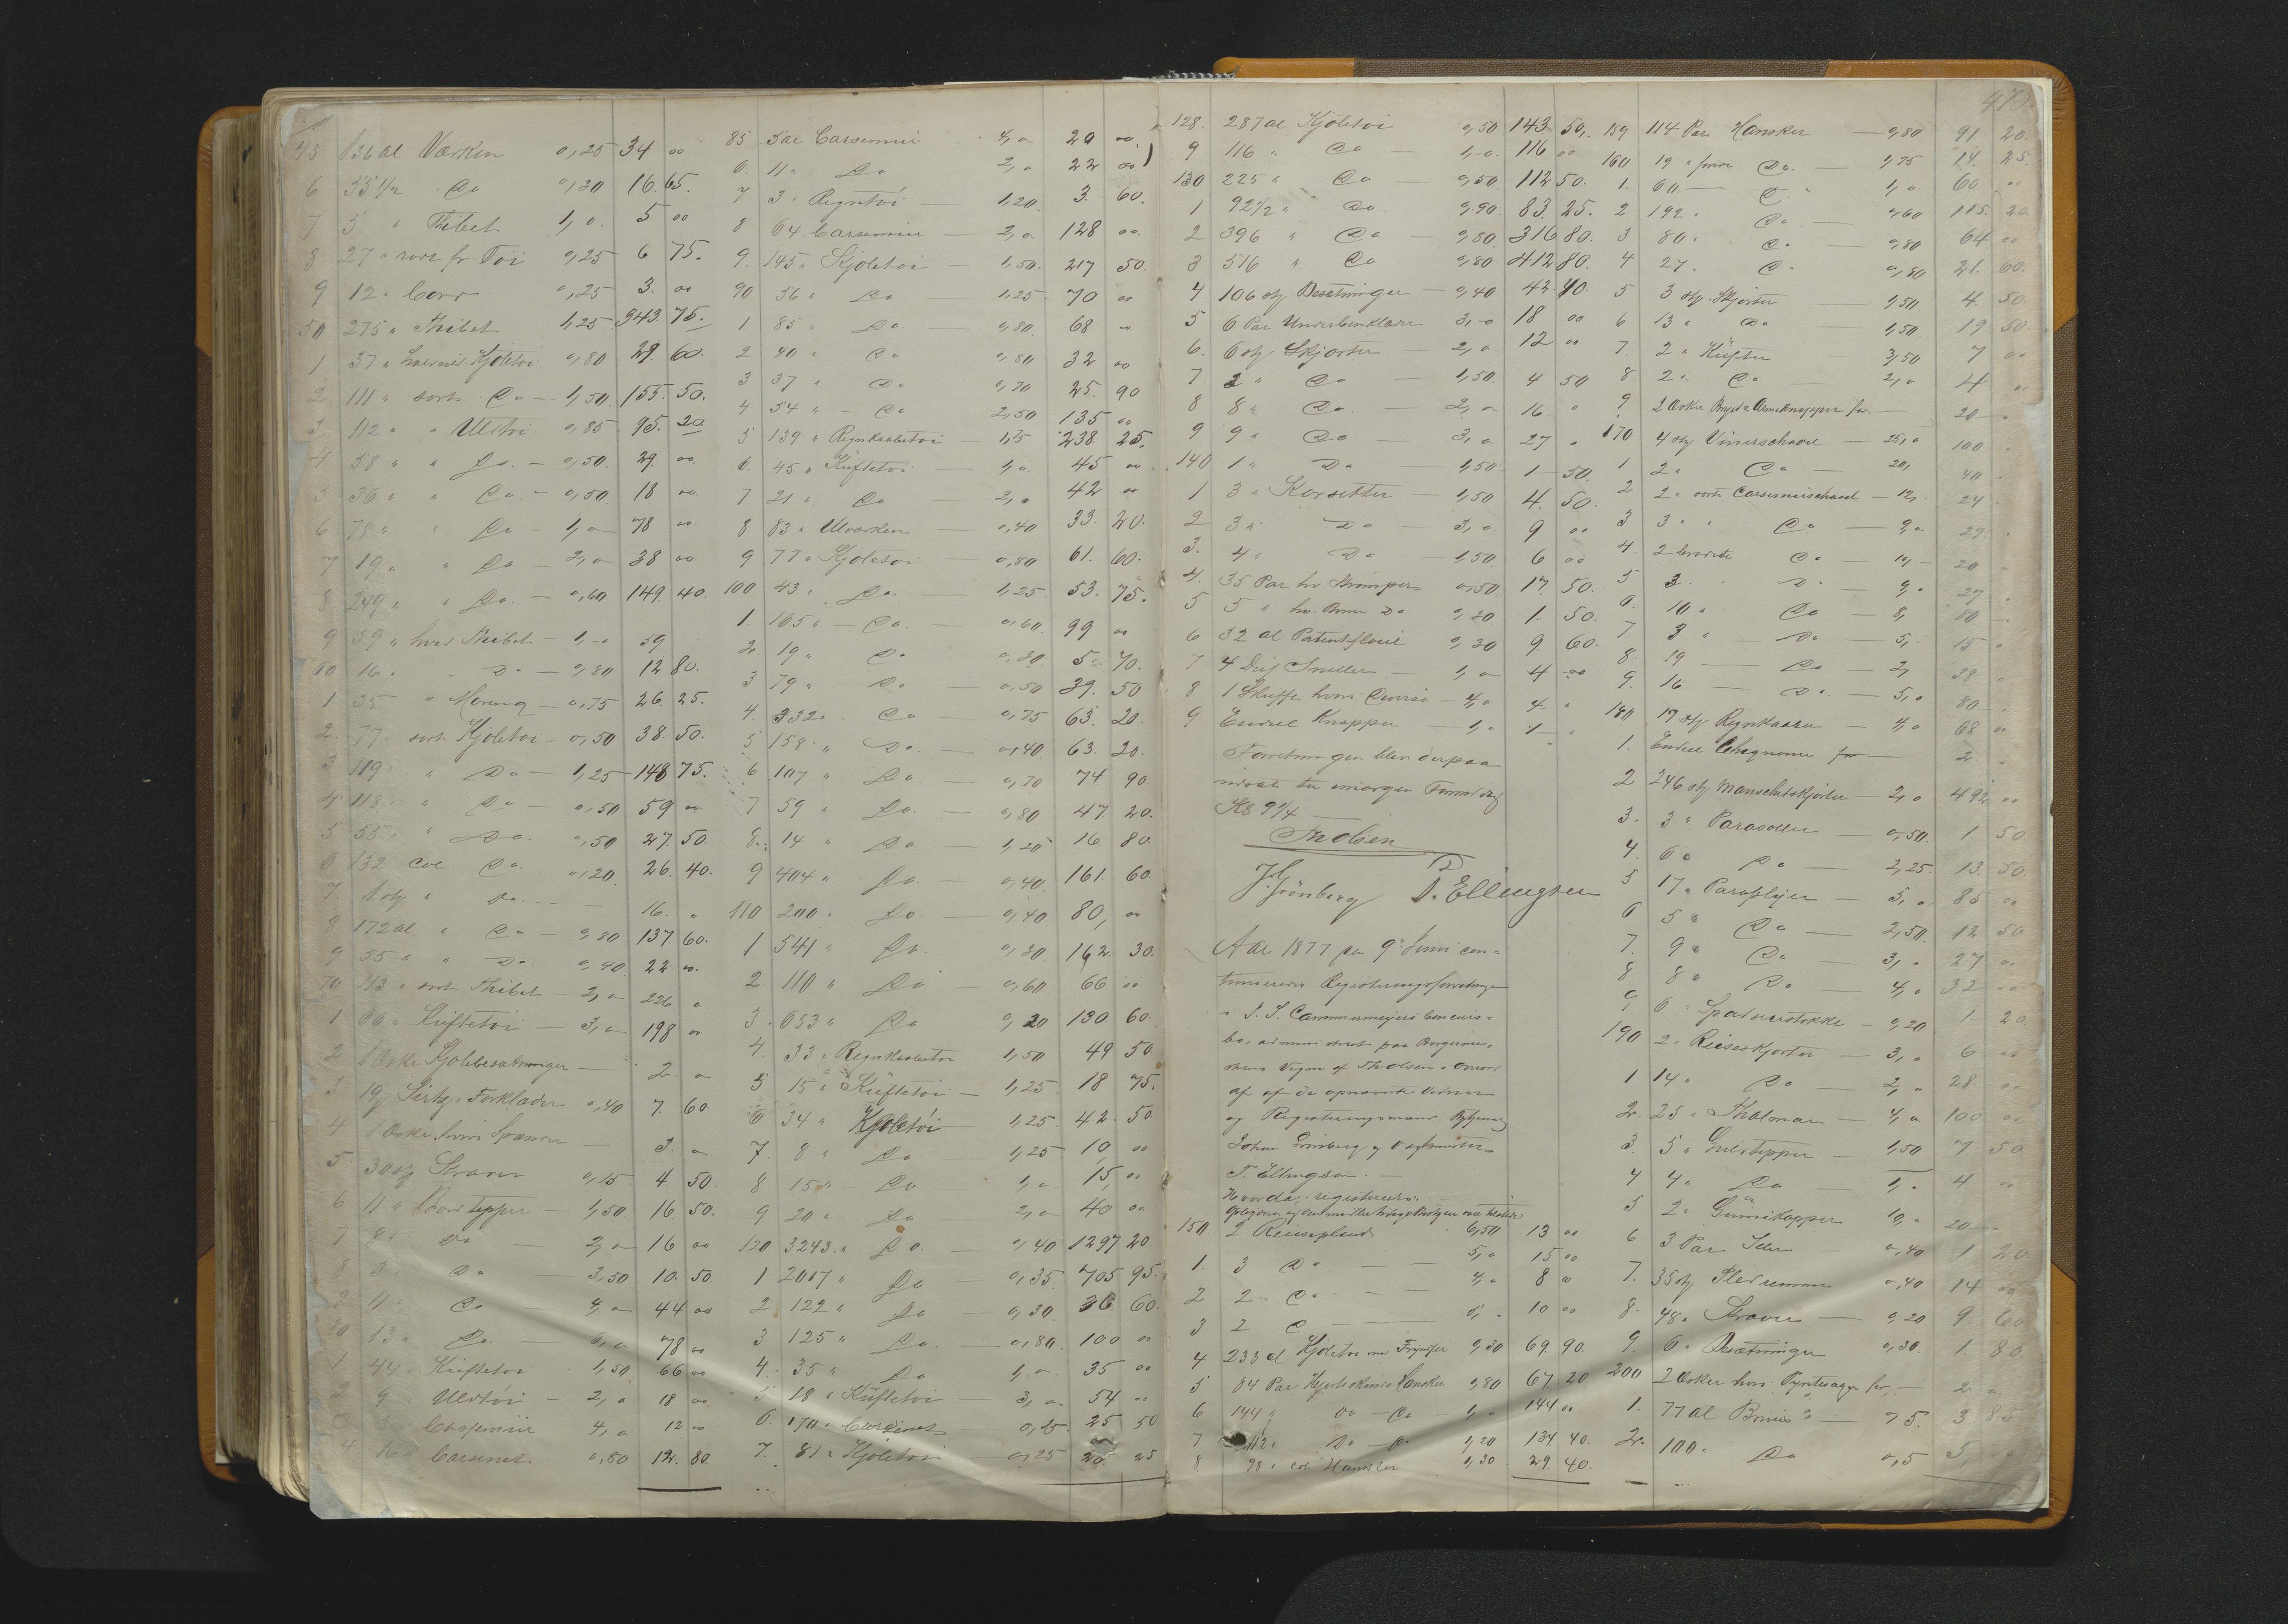 45 136 al Værken 0,25 34 00
6 55 1/2 Do 0,30 16. 65.
7 5 " Thibet 1,0 5 00
8 27 " rødt fr Töi 0,25 6 75.
9 12 " Cord 0,25 3. 00
50. 275 " Thibet 1,25 343. 75.
1. 37 " Kjoletöi 0,80 29. 60.
2. 111 " sort Do - 1,50 155. 50.
3 112 " " Uldtöi 0,85 95. 20
4 58 " " Do. - 0,50. 29. 00.
5 36 " " Do. - 0,50 18 00.
6 78 " " Do - 1,0 78 00
7 19 " " Do - 2,0 38 00
8 249 " " Do. - 0,60 149. 40.
9 59 " hvid Thibet - 1,0 59
60 16 " " Do - 0,80 12 80.
1 35 " Moreng - 0,75 26. 25.
2. 77 " sort Kjoletöi - 0,50 38. 50.
3 119 " " Do - 1,25 148 75.
4 118 " " Do - 0,50 59 00
5 55 " " Do. 0,50 27. 50.
6 132 col Do. 0,20. 26. 40.
7. 1 st " Do. - 16. "
8 172 al " Do - 0,80 137 60.
9 55 " " Do 0,40. 22 00.
70 113 " sort Thibet - 2,0 226 "
1 66 " Küftetöi - 3,0 198 00
2 1 Æske Kjolebesætninger - 2. "
3 19 st Sirtz-Forklæder 0,40 7. 60
4 1 Æske hvori Spænder - 3. "
5 30 st Kraver 0,15 4 50.
6 11 " Bordtepper - 1,50 16 50.
7 8 " Do - 2,0 16 00
8 3 " Do - 3,50 10. 50.
9 11 " Do - 4,0 44 00
80 13 " Do. - 6,0 78 00
1 44 " Küftetöi 1,50 66 00
2 9 Uldtöi - 2,0 18 00
3 3 " Casjemiir 4,0 12 00
4 16 " Carsinet. 0,80 12. 80.
85 5 al Carsemiir 4,0 20 00
6. 11 " Do 2,0 22 00
7 3 " Regntöi - 1,20. 3. 60.
8 64 Carsemiir - 2,0 128 00.
9. 145 " Kjoletöi - 1,50. 217 50.
90 56 " Do 1,25 70 00
1 85 " Do. 0,80 68 00
2 40 " Do 0,80 32 00
3 37 " Do 0,70 25. 90
4 54 " - Do 2,50 135 00
5 139 " Regnkaabetöi - 1,75 238 25.
6. 45 " Küftetöi - 1,0 45 00
7 21 " Do - 2,0 42 00
8 83 " Ulværken - 0,40 33. 20.
9 77 " Kjoletöi - 0,80 61. 60.
100 43 " Do. - 1,25. 53. 75.
1. 165 " - Do. - 0,60 99 00
2. 19 " Do 0,30 5. 70.
3 79 " Do - 0,50 39. 50
4. 332 " Do - 0,75 63. 20.
5 158 " Do - 0,40 63. 20.
6 107 " Do - 0,70 74 90
7 59 " Do - 0,80 47. 20.
8. 14 " Do - 1,20 16 80.
9 404 " Do. - 0,40 161. 60.
110 200 " Do - 0,40 80, 00
1 541 " Do. - 0,30 162. 30.
2 110 " Do - 0,60 66 00
3. 653 " Do - 0,20 130 60.
4. 33 " Regnkaabetöi 1,50 49 50
5 15 " Küftetöi - 1,25. 18 75.
6 34 " Kjoletöi - 1,25. 42. 50
7. 8 " Do - 1,25 10, 00
8 15 " - Do - 1,0 15, 00
9 20 " Do - 2,0 40 00
120 3243 " Do - 0,40 1297 20.
1 2017 " Do - 0,35 705 95.
2 122 " Do - 0,30 36. 60.
3 125 " Do. - 0,80 100 00
4. 35 " Do 1,0 35 00
5 18 " Küftetöi - 3,0 54 00
6. 170 " Carsinet 0,15 25 50
7. 81 " Kjoletöi - 0,25 20 25
128. 287 al Kjoletöi 0,50 143. 50.
9 116 " Do - 1,0 116 00
130 225 " Do - 0,50 112 50.
1 92 1/2 " Do. 0,90. 83. 25.
2 396 " Do - 0,80. 316 80.
3 516 " Do 0,80 412 80.
4 106 st Besetninger - 0,40 42. 40.
5 6 Par Underbenklæder 3,0 18 00
6. 6 st Skjorter - 2,0 12 00
7. 3 " Do - 1,50. 4 50
8 8 " Do. - 2,0 16. "
9 9 " Do - 3,0 27 "
140 1 " Do - 1,50 1 50.
1 3 " Korsetter - 1,50 4. 50.
2 3 " Do - 3,0 9 00
3. 4 " Do - 1,50. 6 00
4. 35 Par hv Strömper 0,50 17. 50.
5 5 " hv. Do 0,30 1. 50.
6 32 al Patentfløiel 0,30 9 60.
7 4 Sneller - 1,0 4 00
8 1 Skuffe hvori Diverse - 4,0 4 "
9 Endeel Knapper - 1,0 1 "
Forretningen blev derpaa
udsat til imorgen Formidag
Kl 9 1/4
Tholsen
J. Grönberg T. Ellingsen
Aar 1877 den 9de Juni con=
tinueredes Registreringsforretningen
i J. J. Cammermeijers Concurs=
bo, administreret paa Borgerme=
sterens Vegne af Tholsen - Overvær
af de opnævnte Vidner
og Registreringsmænd
Johan Grönberg og
T. Ellingsen
Hvorda registreredes:
150 2 Reiseplaid 6,50 13 00
1. 3 Do - 5,0 15 00
2 2 Do - 4,0 8 00
3 2 Do - 10 00
4 233 al Kjoletöi med Frynser 0,30 69. 90.
5 84 Par Hjorteskinds Hansker 0,80 67 20
6 144 " Do - Do - 1,0 144 00
7 112 " Do - Do 1,20 134 40.
8. 98 " col Hansker 0,30 29. 40.
470.
159 114 Par Hansker - 0,80 91. 20.
160 19 " forede Do. - 0,75 14. 25.
1. 60 - Do " 1,0 60 00
2 192 " Do - 0,60 115. 20.
3 80 " Do - 0,80 64 00
4 27 " Do - 0,80 21. 60.
5 3 st Skjorter 1,50 4. 50
6 13 " Do - 1,50. 19 50
7. 2 " Küfter - 3,50 7 00
8 2 " Do - 2,0 4 00
9 2 Æsker Bryst & Ærmeknapper for - 20 -
170 4 st Vinterschavl - 25,0 100 "
1 2 " Do - 20, 40 "
2 2 " sorte Carsemirschavl - 12, 24 "
3 3 " " Do - 9,0 27. "
4. 2 brodrede Do - 10, 20
5 3 " Do - 9,0 27 "
6. 10 " Do - 8, 80 -
7 3 " Do - 5, 15 "
8. 19 - Do - 2, 38 "
9. 16 - Do - 5,0 80 -
180 17 st Regnkaaber - 4,0 68 00
1. Endeel Chignoner for - 2 "
2 246 st Manschetskjorter - 2,0 492 00
3. 3 " Parasoller - 0,50. 1. 50.
4. 6 " Do - 2,25. 13. 50.
5 17 " Paraplyer - 5,0 85 00
6 5 " Do - 2,50. 12 50
7. 9 " Do - 3,0 27 00
8 8 " Do - 4,0 32 00
9 6 " Spadserstokke - 0,20 1. 20.
190 2 " Reiseskjorter - 3,0 6 00
1 14 " Do - 2,0 28. 00
2. 25 " Thalmaer - 4,0 100 00
3. 5 " Gulvtepper - 1,50 7 50
4 4 " Do - 1,0 4 00
5 2 " Gumikapper 10,0 20
6 3 Par Seler - 0,40 1. 20
7. 35 st - 0,40 14 00
8. 48 " Kraver - 0,20 9. 60
9 6 " Besætninger 0,30. 1. 80.
200 2 Æsker hvori Pyntesager for - 2 "
1. 77 al - 75. 3 85.
2. 100 " Do 0,5 5,